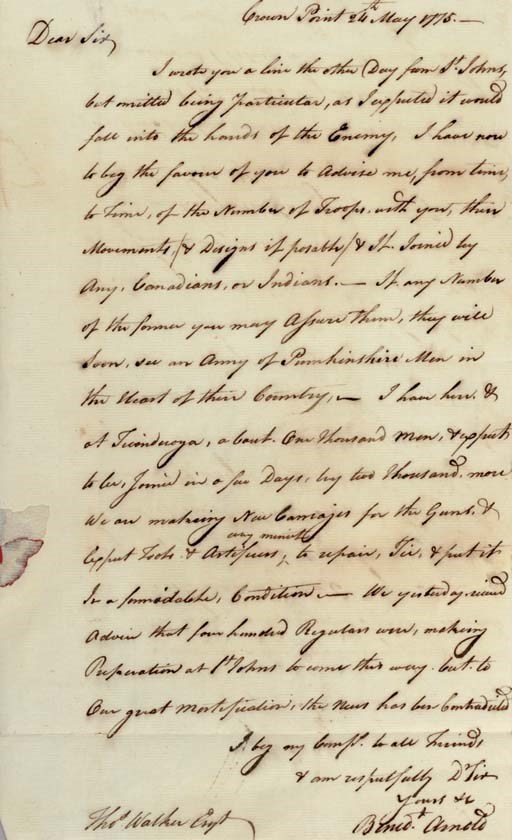 Crown Point 24th May 1775.—
Dear Sir,
I wrote you a line the other Day from St. Johns,
but omitted being particular, as I expected it would
fall into the hands of the Enemy, I have now
to beg the favour of you to Advise me, from time,
to time, of the Number of Troops, with you, their
Movements, (& Designs if posable) & If Joined by
Any, Canadians, or Indians.— If any Number
of the former you may Assure them, they will
soon, see an Army of Pumkinshire Men in
the Heart of their Country,— I have here. &
at Ticonderoga, about. One thousand men, & expect
to be, Joined in a few Days, by two thousand. more
We are makeing New Carriages for the Guns. &
every minute
Expect Tools & Artificers, to repair, Tie, & put it
In a formidable, Condition.— We yesterday recieved
Advice that four hundred Regulars were, making
Preparation at St Johns to come this way. but. to
Our great Mortification, the News has been Contradicted
I. beg my Compts. to all Friends
& am respectfully Dr Sir
Yours &c
Thos. Walker Esqr
Benedt. Arnold